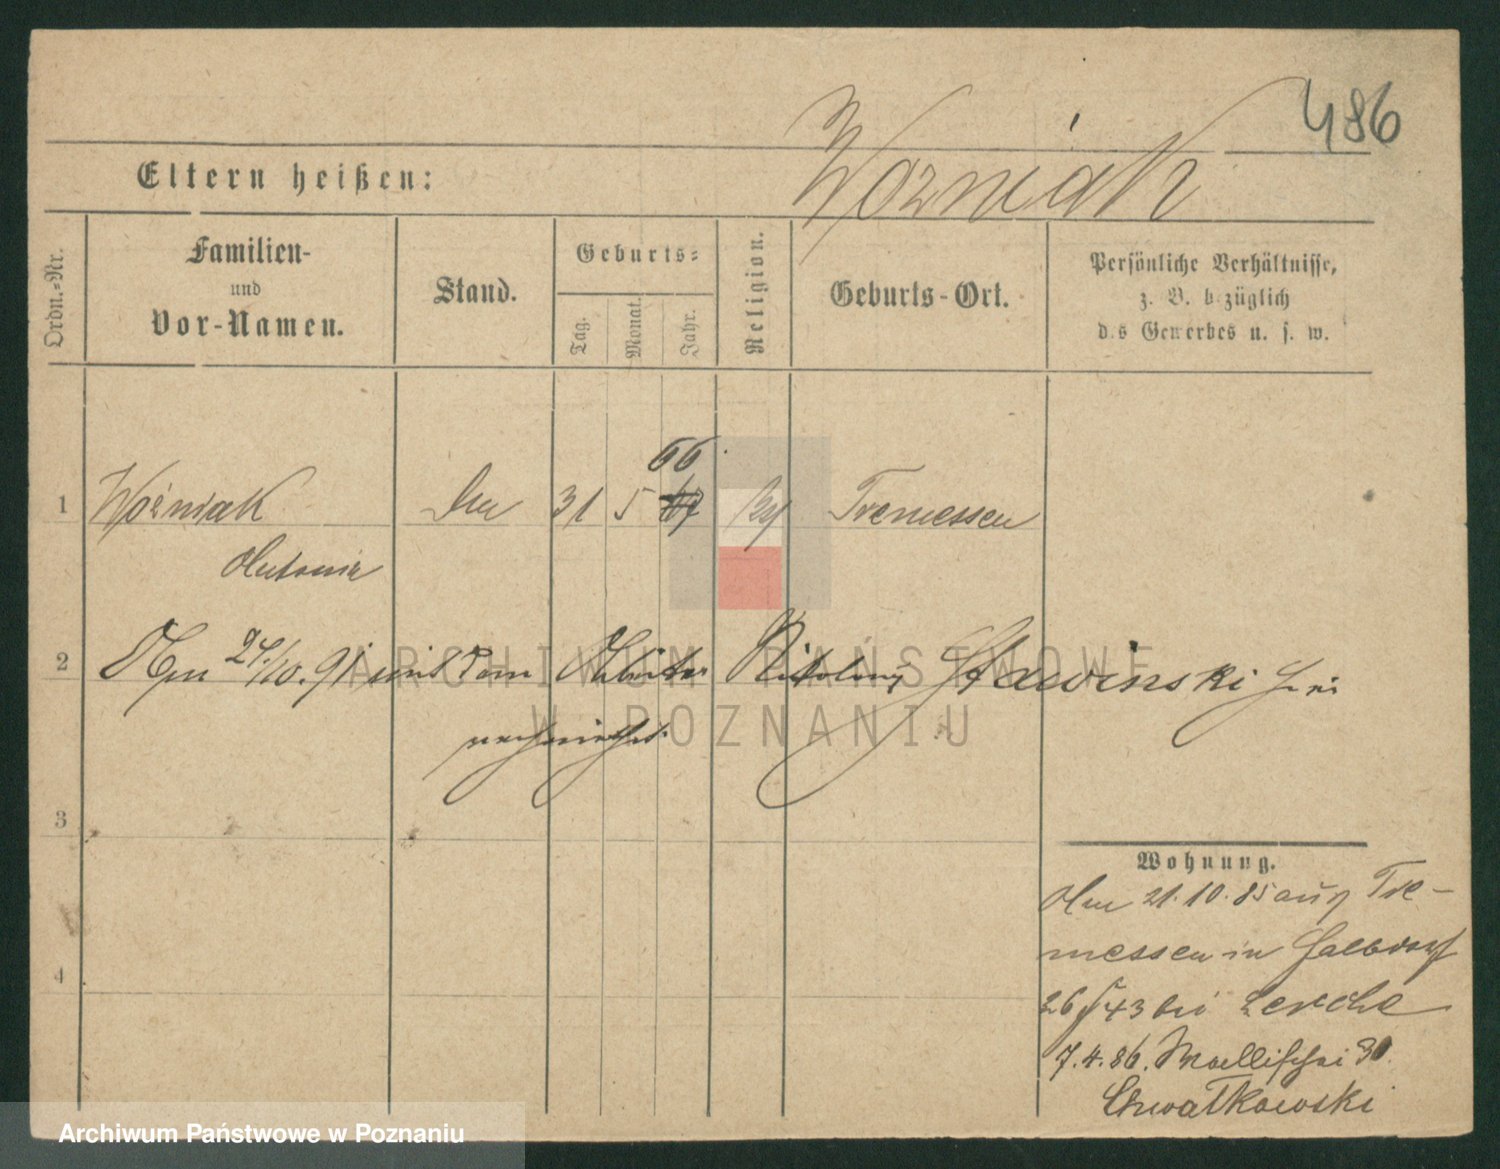 486
Woźniak
Eltern heißen:
Ordn.-Nr.
Familien-
und
Vor-Namen.
Stand.
Geburts-
Tag.
Monat.
Jahr.
Religion.
Geburts-Ort.
Persönliche Verhältnisse,
z. B. bezüglich
des Gewerbes u. s. w.
66
1 Woźniak 31 5 67 Tremessen
Antonie
2 Am 24./10. 91 mit dem Arbeiter Stawinski hier
verheirathet.
3
4
Wohnung.
Am 21.10.85 aus Tre-
messen in Halbdorf
26 43 bei Lerche
7.4.86. Wallischei 30.
Chwatkowski
ARCHIWUM PAŃSTWOWE
W POZNANIU
Archiwum Państwowe w Poznaniu